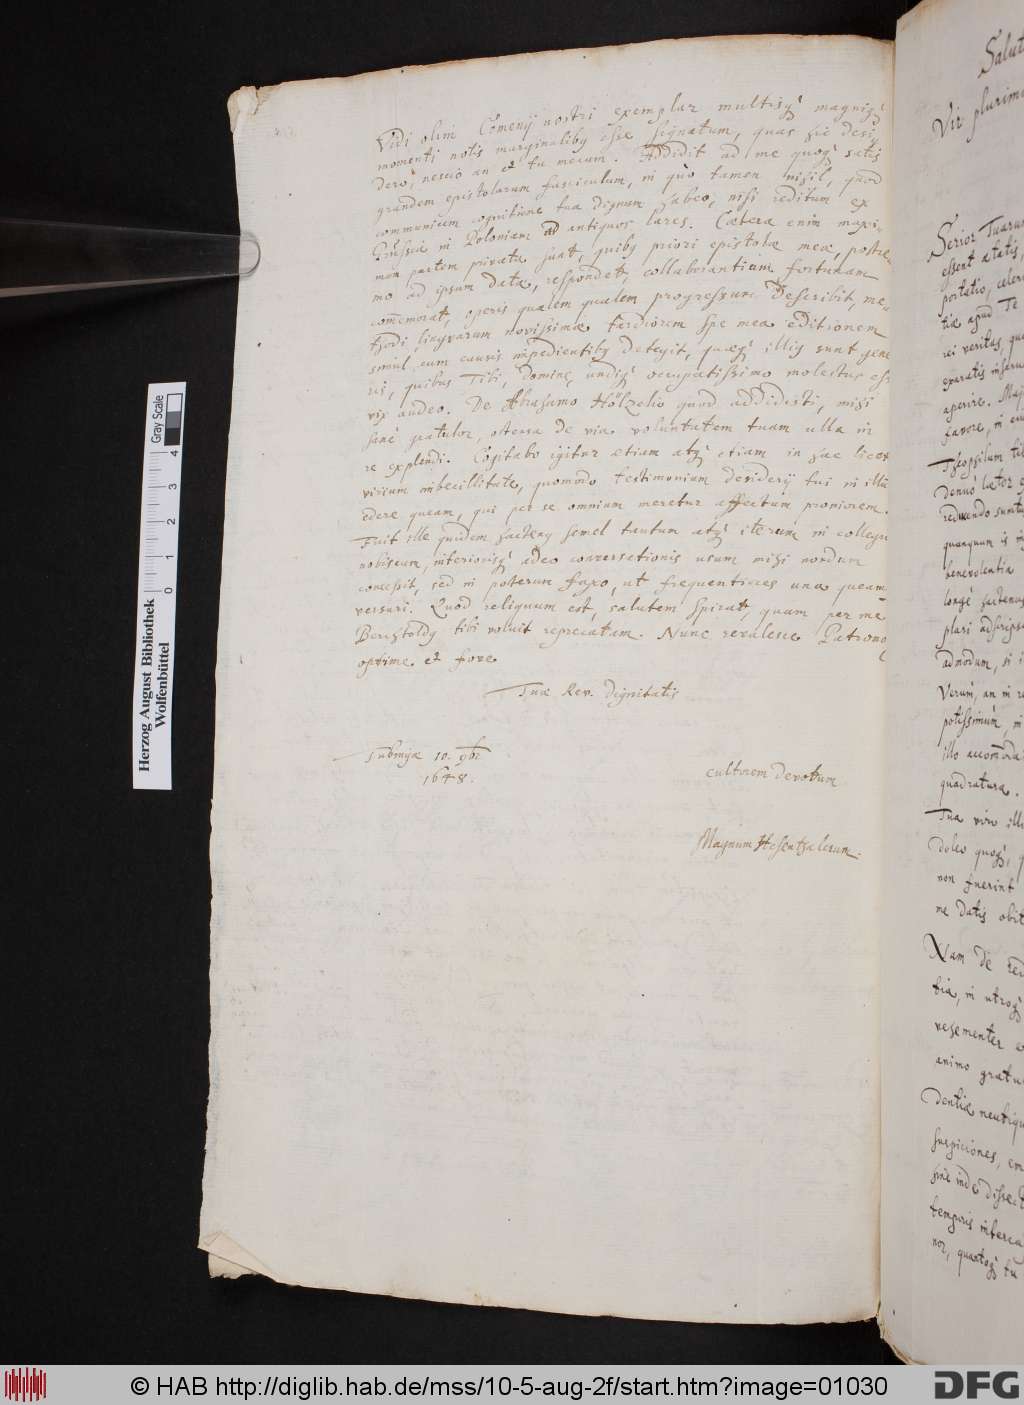 Vidi olim Comenij nostri exemplar multisq́ magnisq́
momenti notis marginalibꝰ esse signatum, quas sic desi-
dero, nescio an et tu mecum. Addidit ad me quoq́ satis
grandem epistolarum fasciculum, in quo tamen nihil, quod
communium cognitione tua dignum habeo, nisi reditum ex
Prussia in Poloniam ad antiquos lares. Cætera enim maxi-
mam partem privata sunt, quibꝰ priori epistolæ meæ, postre-
mo ad ipsum datæ, respondet, collaborantium fortunam
com̄emorat, operis qualem qualem progressum describit, me-
thodi linguarum novissimæ tardiorem spe mea editionem
simul cum causis impedientibꝰ detegit, quæq́ illis sunt gene-
ris, quibus Tibi, domine, undiq́ occupatissimo molestus esse
vix audeo. De Abrahamo Hölzelio quod addidisti, mihi
sane gratulor, ostensa de via voluntatem tuam ulla in
re explendi. Cogitabo igitur etiam atq́ etiam in hac licet
virium imbecillitate, quomodo testimonium desiderij tui in illū
edere queam, qui per se omnium meretur affectum proniorem.
Fuit ille quidem hactenꝰ semel tantum atq́ iterum in collegio
nobiscum, interiorisq́ adeo conversationis usum mihi nondum
concessit, sed in posterum faxo, ut frequentius una queam
versari. Quod reliquum est, salutem spirat, quam per me
Berchtoldꝰ tibi voluit reprecatam. Nunc revalesce Patrone
optime et fove
Tuæ Rev. Dignitatis
Tubingæ 10. 9br
1648.
cultorem devotum
Magnum Hesenthalerum.
Salut
Vir plurim
Serior Tuarum
essent ætatis,
portatio, celer
tiæ apud Te
rei veritas, qu
exaratis inseru
aperire.
favore, in eu
Theophilum ti
denuò lætor
reducendo sumtu
quanquam is in
benevolentia
longè hactenus
plari adscrips
admodum, si i
Verùm, an in re
potissimùm, in
illo accom̄oda
quadratura.
Tua viri ill
doleo quoq́,
non fuerint
me datis obit
Nam de red
tia, in utroq́
vehementer
animo gratu
dentiæ neutiqu
suspiciones, em
sine inde dissect
temporis interca
nor, quantoq́ tu
Herzog August Bibliothek
Wolfenbüttel
Gray Scale
0 1 2 3 4
© HAB http://diglib.hab.de/mss/10-5-aug-2f/start.htm?image=01030
DFG